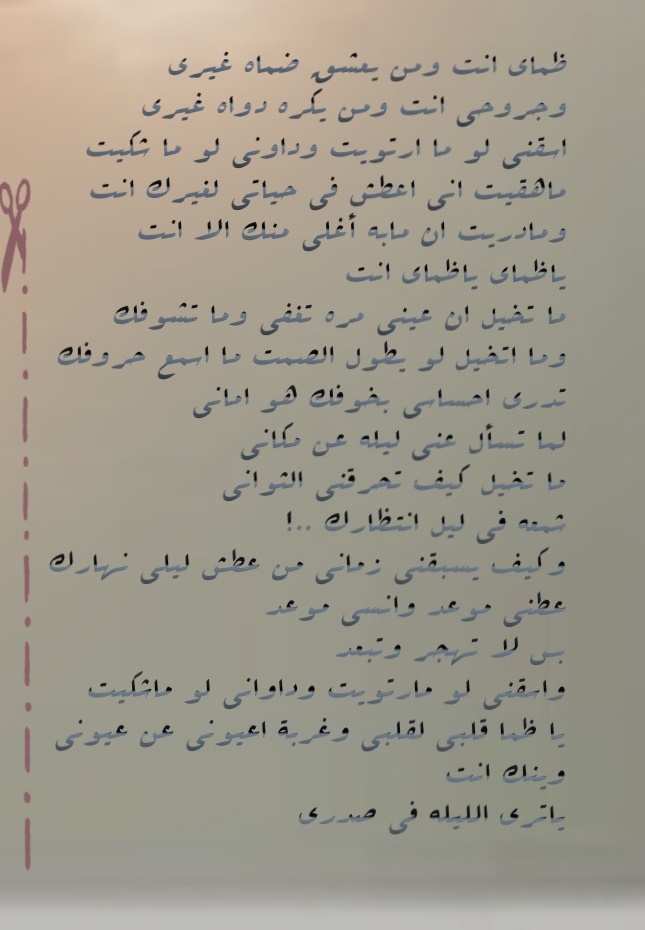 ظماى انت ومن يعشق ضماه غيرى
وجروحى انت ومن يكره دواه غيرى
اسقنى لو ما ارتويت وداونى لو ما شكيت
ماهقيت انى اعطش فى حياتى لغيرك انت
ومادريت ان مابه أغلى منك الا انت
ياظماى ياظماى انت
ما تخيل ان عينى مره تغفى وما تشوفك
وما اتخيل لو يطول الصمت ما اسمع حروفك
تدرى احساسى بخوفك هو امانى
لما تسأل عنى ليله عن مكانى
ما تخيل كيف تحرقنى الثوانى
شمعه فى ليل انتظارك ..!
وكيف يسبقنى زمانى من عطش ليلى نهارك
عطنى موعد وانسى موعد
بس لا تهجر وتبعد
واسقنى لو مارتويت وداوانى لو ماشكيت
يا ظما قلبى لقلبى وغربة اعيونى عن عيونى
وينك انت
ياترى الليله فى صدرى